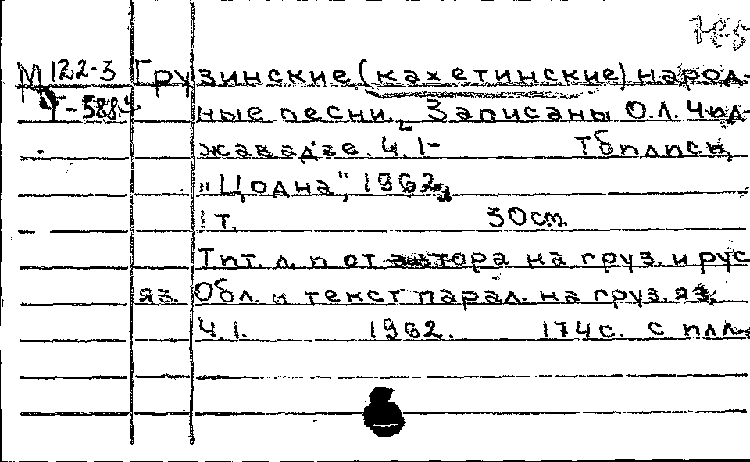 М 122-3 Грузинские (кахетинские) народ-
Г-588 ные песни. Записаны О.Л. Чид-
жавадзе. Ч.1- Тбилиси,
"Цодна", 1962.
1 т. 30 cm.
Тит. л. и от автора на груз. и рус
яз. Обл. и текст парал. на груз. яз.
Ч.1. 1962. 174 с. с илл.